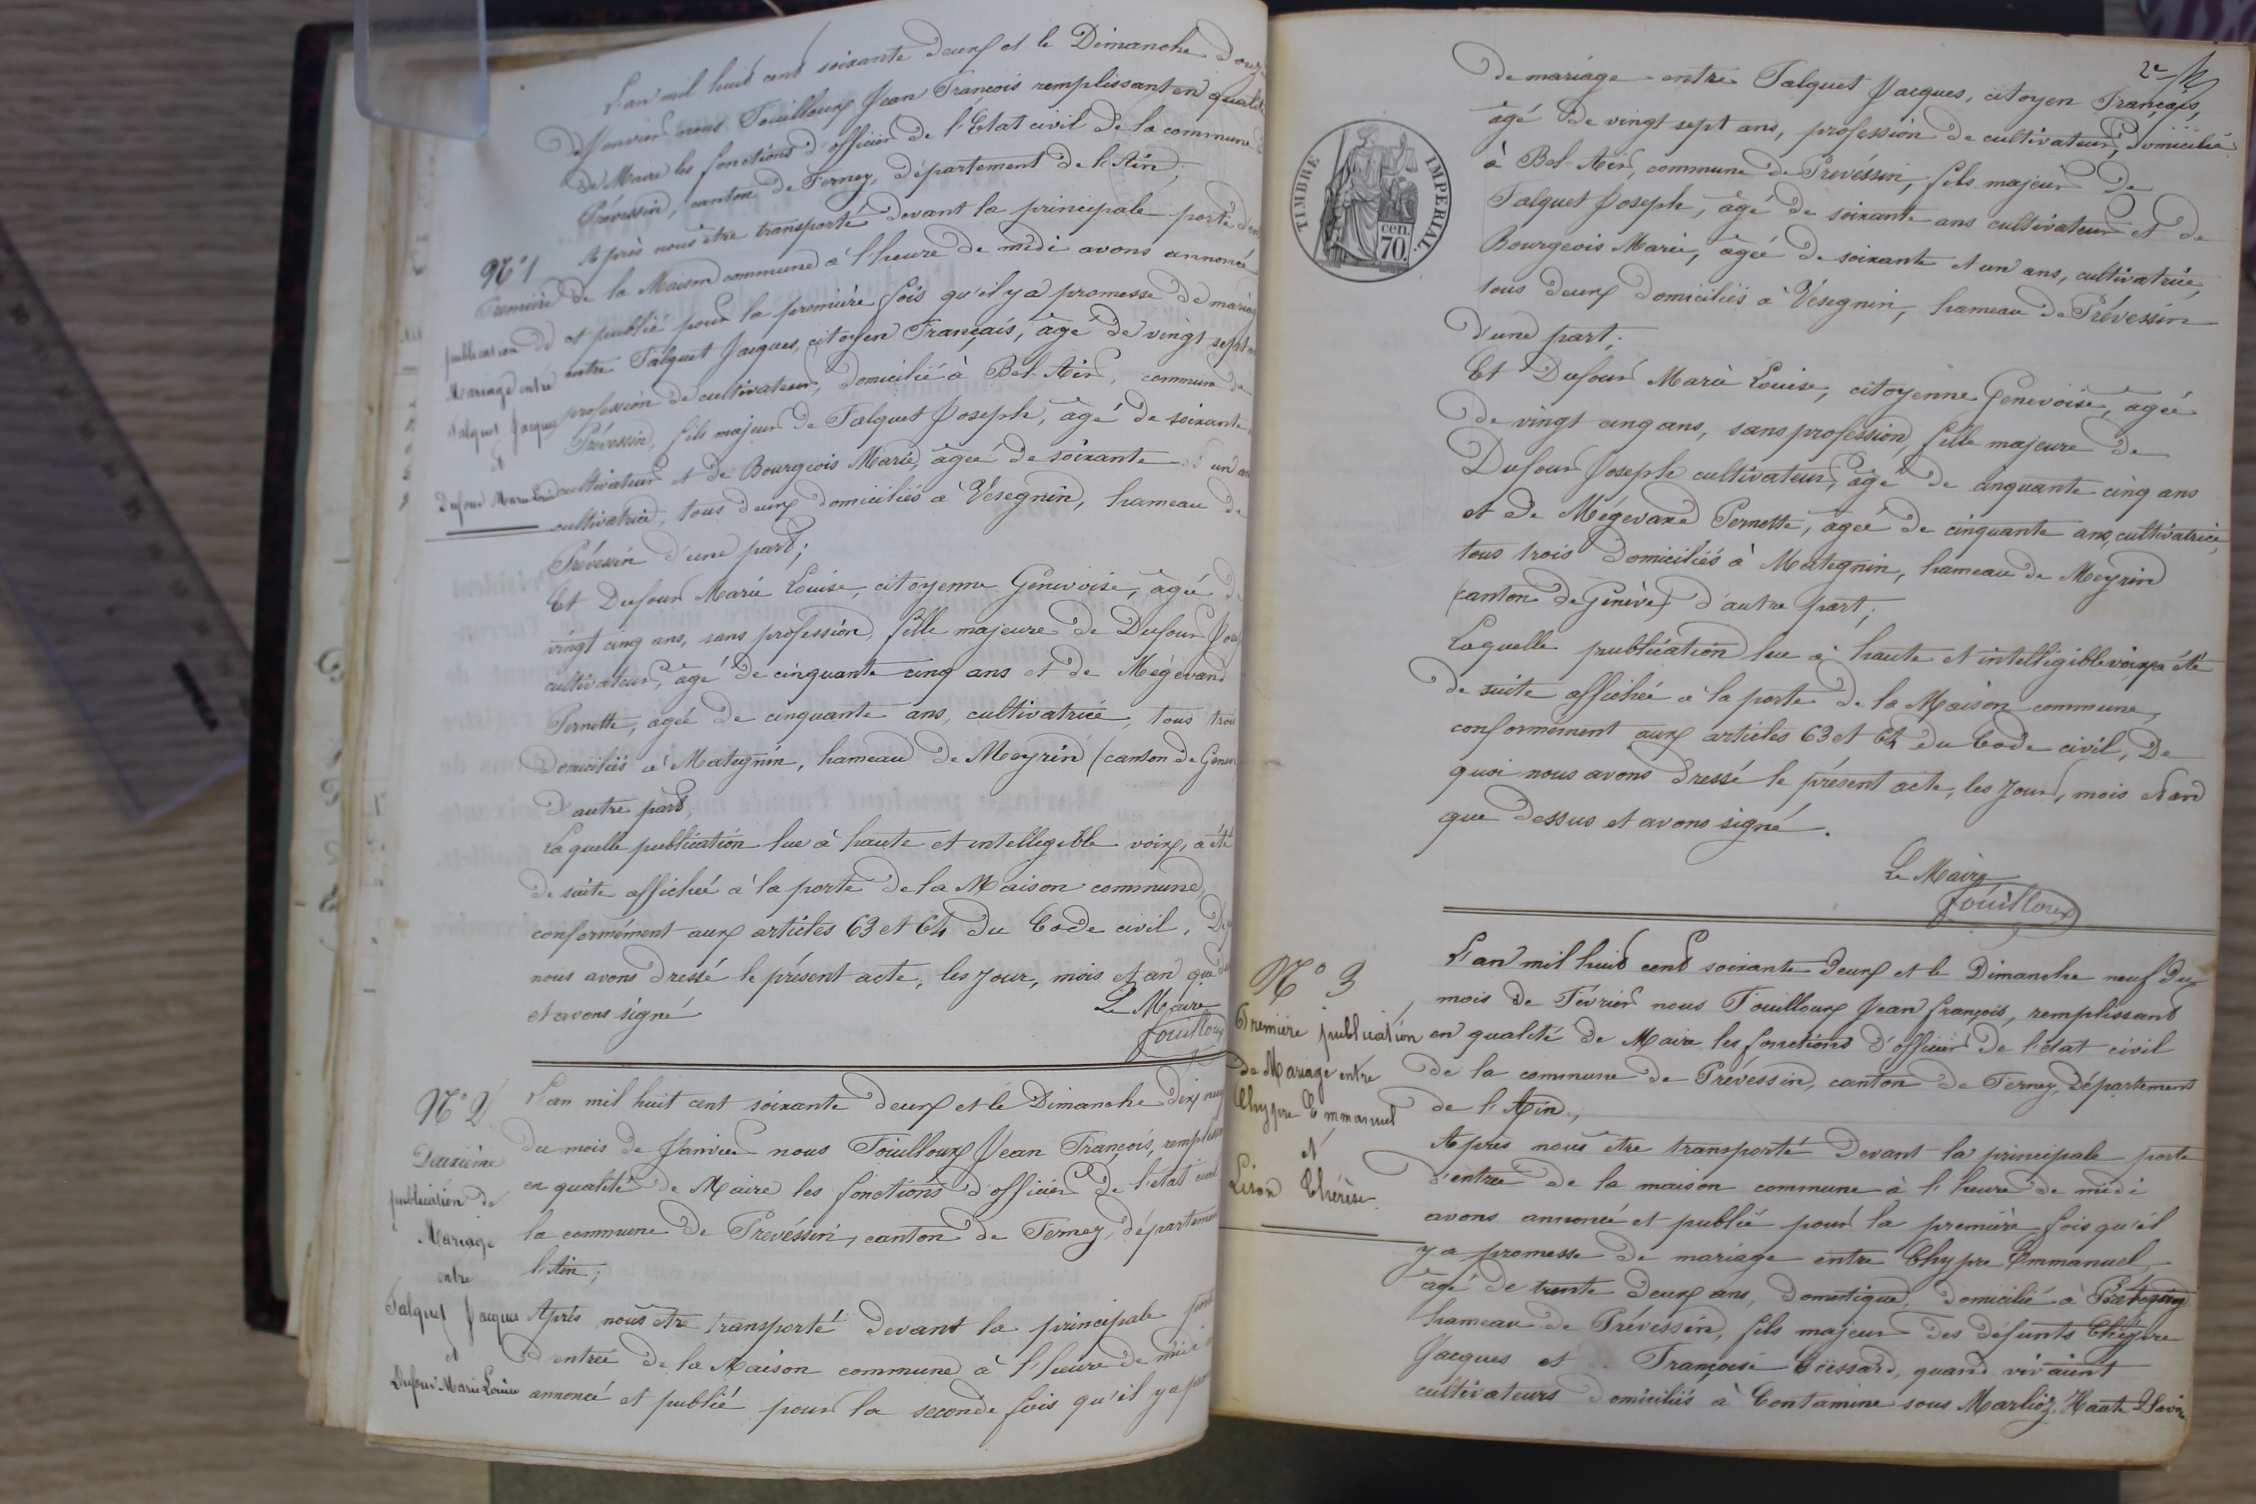 L'an mil huit cent soixante deux et le Dimanche douze
de Janvier nous Fouilloux Jean François remplissant en qualité
de Maire les fonctions d'officier de l'Etat civil de la commune de
Prévessin, canton de Ferney, département de l'Ain,
Après nous être transporté devant la principale porte d'en
N° 1
de la Maison commune à l'heure de midi avons annoncé
et publié pour la première fois qu'il y a promesse de mariage
entre Falquet Jacques, citoyen Français, âgé de vingt sept ans
profession de cultivateur, domicilié à Bel-Air, commune de
Prévessin, fils majeur de Falquet Joseph, âgé de soixante
cultivateur et de Bourgeois Marie, âgée de soixante et un ans
cultivatrice, tous deux domiciliés à Vésegnin, hameau de
Prévessin d'une part;
Première
publication de
Mariage entre
Falquet Jacques
et
Dufour Marie Louise
Et Dufour Marie Louise, citoyenne Genevoise, âgée de
vingt cinq ans, sans profession, fille majeure de Dufour Jos
cultivateur, âgé de cinquante cinq ans et de Mégevand
Pernette, âgée de cinquante ans, cultivatrice, tous trois
domiciliés à Mategnin, hameau de Meyrin (canton de Genève
d'autre part,
Laquelle publication lue à haute et intelligible voix, a été
de suite affichée à la porte de la Maison commune,
conformément aux articles 63 et 64 du Code civil, De
nous avons dressé le présent acte, les jour, mois et an que d
et avons signé
Le Maire
Fouilloux
N° 2
Deuxième
publication de
Mariage
entre
Falquet Jacques
et
Dufour Marie Louise
L'an mil huit cent soixante deux et le Dimanche dix neuf
du mois de Janvier nous Fouilloux Jean François, remplissant
en qualité de Maire les fonctions d'officier de l'état civil
la commune de Prévessin, canton de Ferney, département
l'Ain;
Après nous être transporté devant la principale porte
d'entrée de la Maison commune à l'heure de midi
annoncé et publié pour la seconde fois qu'il y a pro
2e
de mariage entre Falquet Jacques, citoyen Français,
âgé de vingt sept ans, profession de cultivateur, domicilié
à Bel-Air, commune de Prévessin, fils majeur de
Falquet Joseph, âgé de soixante ans cultivateur et de
Bourgeois Marie, âgée de soixante et un ans, cultivatrice,
tous deux domiciliés à Vésegnin, hameau de Prévessin
d'une part;
TIMBRE IMPÉRIAL.
cen.
70.
Et Dufour Marie Louise, citoyenne Genevoise, âgée
de vingt cinq ans, sans profession, fille majeure de
Dufour Joseph cultivateur, âgé de cinquante cinq ans
et de Mégevand Pernette, âgée de cinquante ans, cultivatrice,
tous trois domiciliés à Mategnin, hameau de Meyrin
(canton de Genève) d'autre part;
Laquelle publication lue à haute et intelligible voix, a été
de suite affichée à la porte de la Maison commune,
conformément aux articles 63 et 64 du Code civil, De
quoi nous avons dressé le présent acte, les jour, mois et an
que dessus et avons signé.
Le Maire
Fouilloux
N° 3
Première publication
de Mariage entre
Chypre Emmanuel
et
Liron Thérèse.
L'an mil huit cent soixante deux et le Dimanche neuf du
mois de Février nous Fouilloux Jean françois, remplissant
en qualité de Maire les fonctions d'officier de l'état civil
de la commune de Prévessin, canton de Ferney, département
de l'Ain,
Après nous être transporté devant la principale porte
d'entrée de la maison commune à l'heure de midi
avons annoncé et publié pour la première fois qu'il
y a promesse de mariage entre Chypre Emmanuel,
âgé de trente deux ans, domestique, domicilié à
hameau de Prévessin, fils majeur des défunts Chypre
Jacques et Françoise quand vivaient
cultivateurs domiciliés à Contamine sous Marlioz, Haute Savoie